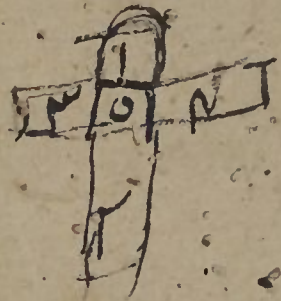 ١
٣ ٥ ٤
٢